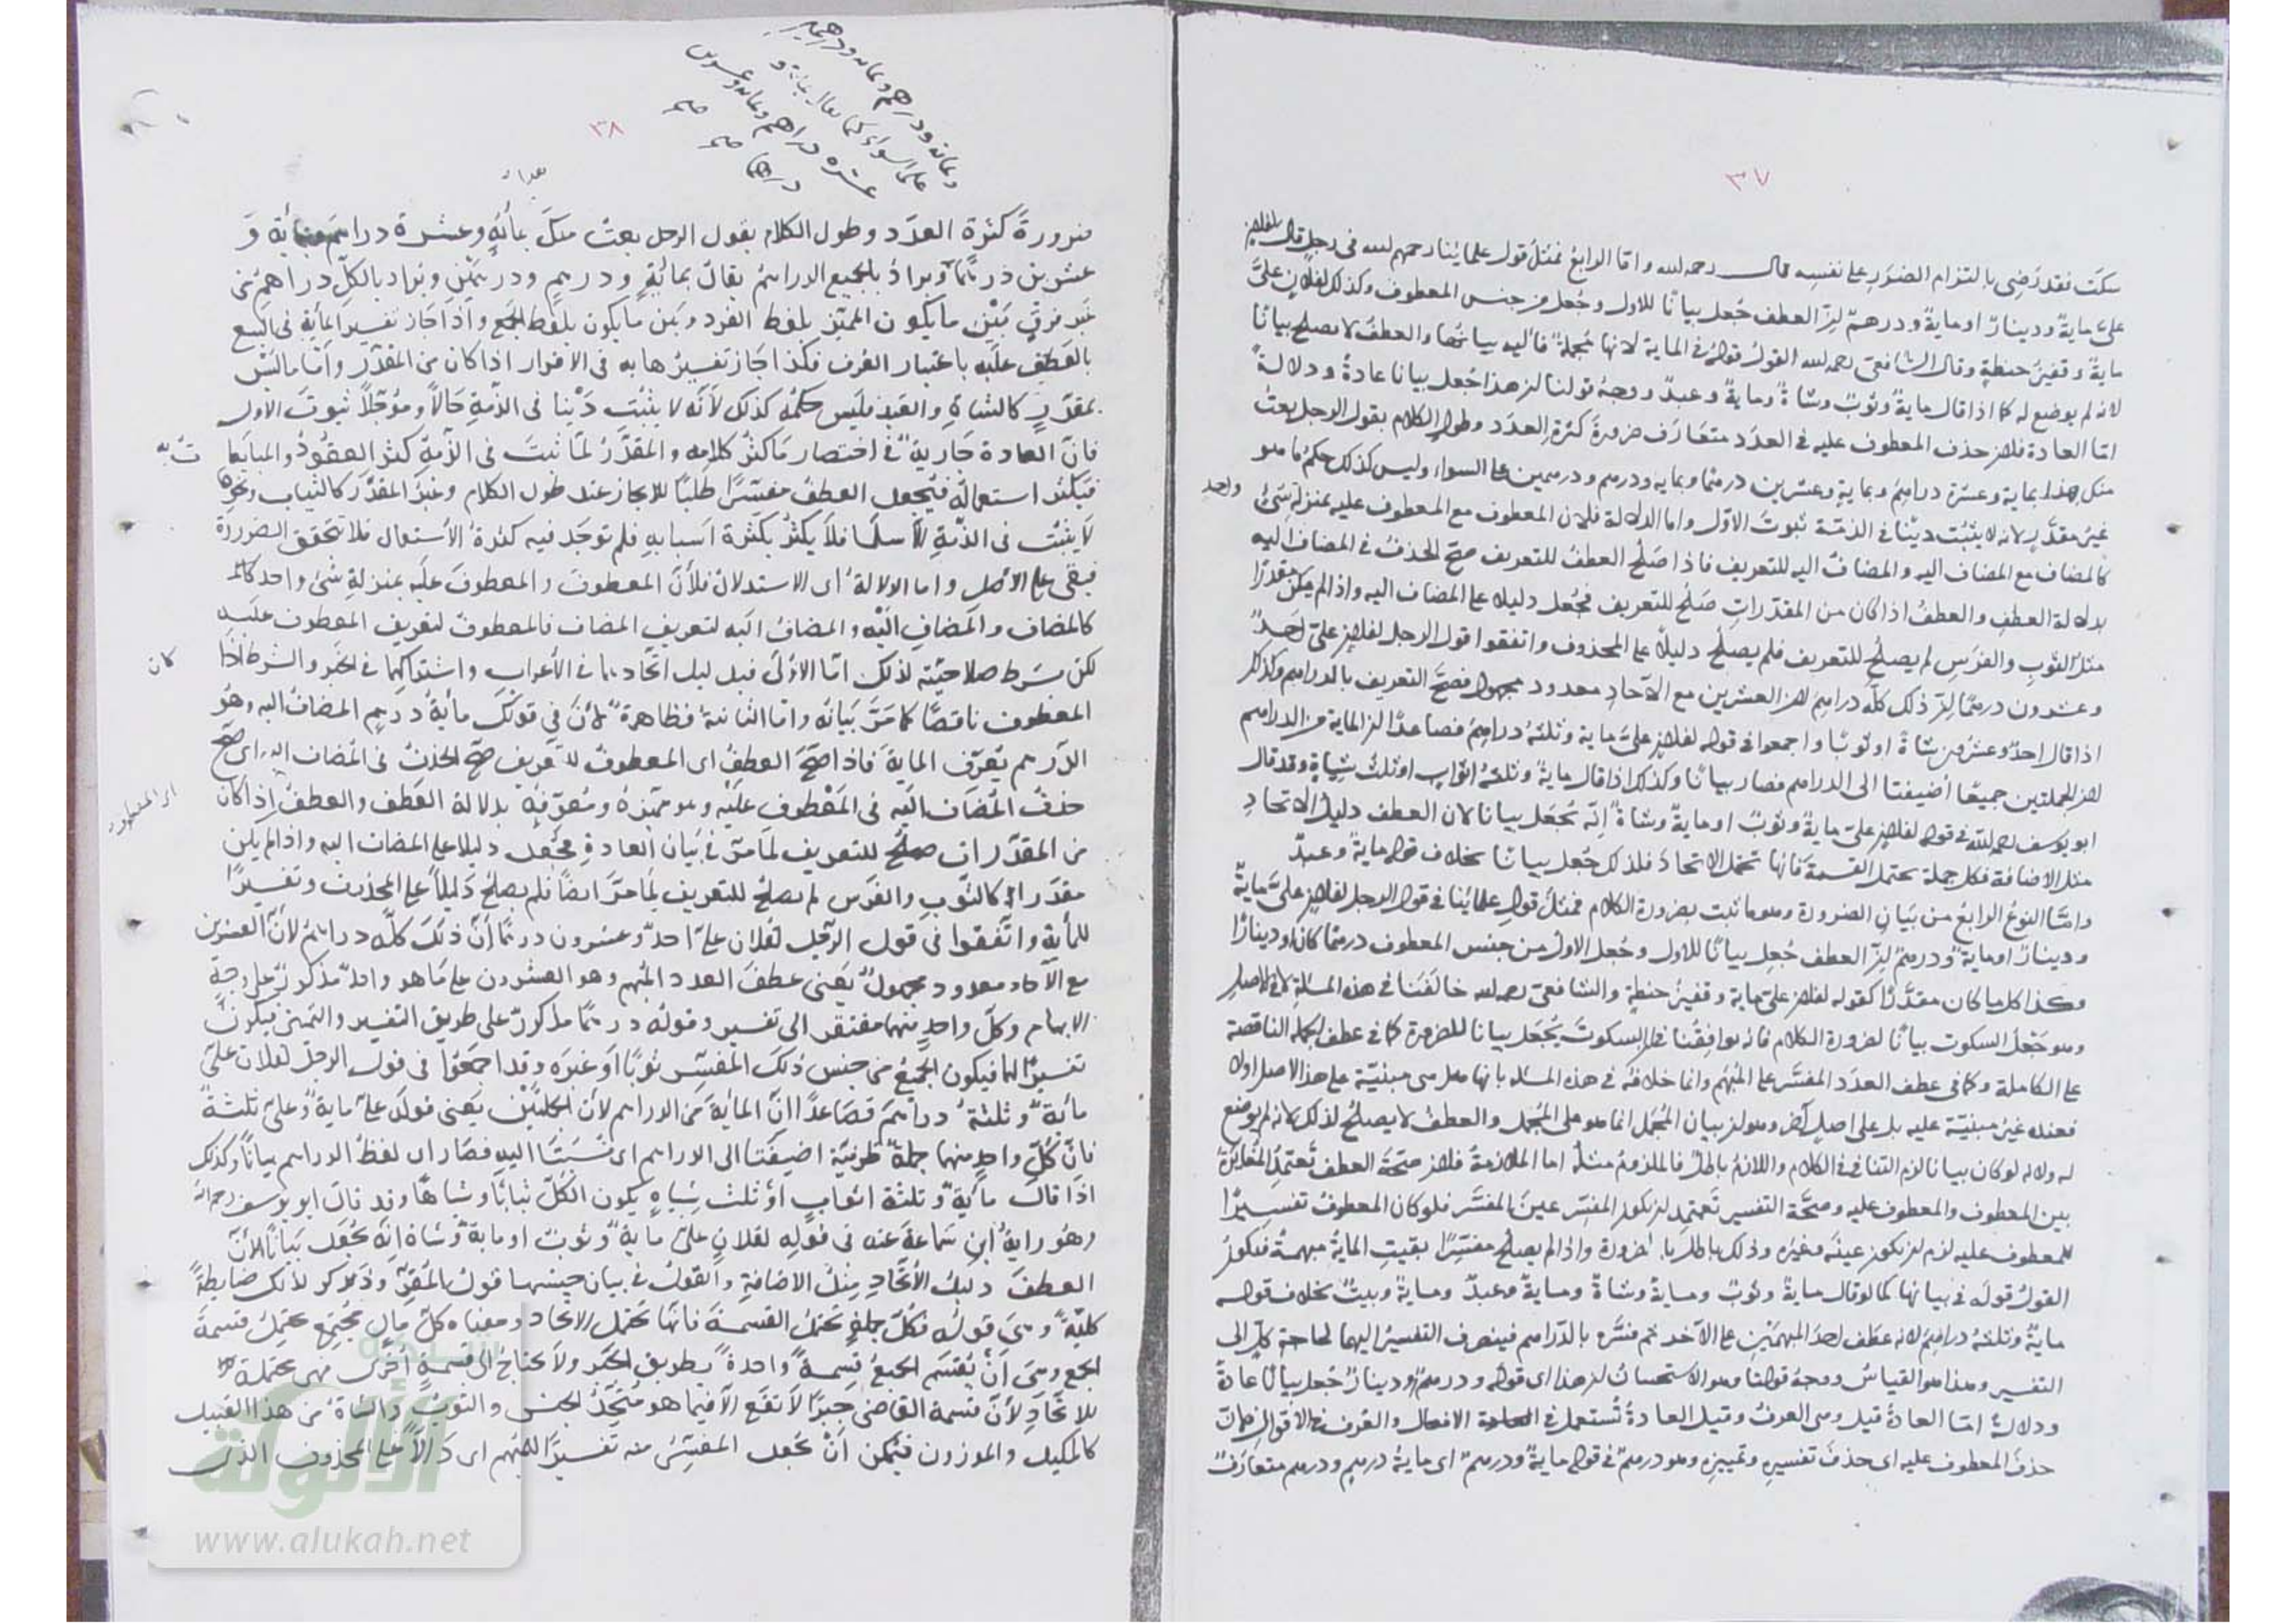 ٣٧
سكت فقد رضي بالتزام الضرر على نفسه قال رحمه الله واما الرابع فمثل قول علمائنا رحمهم الله في رجل قال لفلان
علىّ ماية ودينار او ماية ودرهم لان العطف جُعل بيانًا للاول وجُعل من جنس المعطوف وكذلك لفلان علىّ
ماية وقفيز حنطةٍ وقال الشافعي رحمه الله القول قوله في الماية لانها مجملة فاليه بيانها والعطف لا يصلح بيانًا
لانه لم يوضع له كما اذا قال ماية وثوب وشاة وماية وعبد ووجه قولنا ان هذا جُعل بيانا عادة ودلالة
اما العادة فلان حذف المعطوف عليه في العدد متعارف ضرورة كثرة العدد وطول الكلام يقول الرجل بعت
منك هذا بماية وعشرة دراهم وبماية وعشرين درهما وبماية ودرهم ودرهمين على السواء وليس كذلك حكم ما هو
غير مقدّر لانه لا يثبت دينا في الذمة ثبوت الاول واما الدلالة فلان المعطوف مع المعطوف عليه بمنزلة شيء
واحد
كالمضاف مع المضاف اليه والمضاف اليه للتعريف فاذا صلح العطف للتعريف صح الحذف في المضاف اليه
بدلالة العطف والعطف اذا كان من المقدّرات صلح للتعريف فجُعل دليلا على المضاف اليه واذا لم يكن مقدرا
مثل الثوب والفرس لم يصلح للتعريف فلم يصلح دليلًا على المحذوف واتفقوا في قول الرجل لفلان علىّ احد
وعشرون درهمًا ان ذلك كلّه دراهم لان العشرين مع الآحاد معدود مجهول فصح التعريف بالدراهم وكذلك
اذا قال احد وعشرون شاةً او ثوبًا واجمعوا في قوله لفلان علىّ ماية وثلثة دراهم فصاعدًا ان الماية من الدراهم
لان الجملتين جميعًا أضيفتا الى الدراهم فصار بيانًا وكذلك اذا قال ماية وثلثة اثواب او ثلث شياه وقد قال
ابو يوسف رحمه الله في قوله لفلان علىّ ماية وثوب او ماية وشاة انه يُجعل بيانا لان العطف دليل الاتحاد
مثل الاضافة فكل جملة تحتمل القسمة فانها تحتمل الاتحاد فلذلك جُعل بيانًا بخلاف قوله ماية وعبد
وامّا النوع الرابع من بيان الضرورة وهو ما ثبت بضرورة الكلام فمثل قول علمائنا في قول الرجل لفلان علىّ ماية
ودينار او ماية ودرهم ان العطف جُعل بيانًا للاول وجُعل الاول من جنس المعطوف درهما كان او دينارًا
وهكذا كل ما كان مقدّرًا كقوله لفلان علىّ ماية وقفيز حنطة والشافعي رحمه الله خالفنا في هذه المسئلة لا في الاصل
وهو جعل السكوت بيانًا لضرورة الكلام فانه يوافقنا في ان السكوت يُجعل بيانا للضرورة كما في عطف الجملة الناقصة
على الكاملة وكما في عطف العدد المفسَّر على المبهم وانما خلافه في هذه المسئلة بانها هل هي مبنيّة على هذا الاصل اولا
فعنده غير مبنيّة عليه بل على اصل آخر وهو ان بيان المجمل انما هو على المجمِل والعطف لا يصلح لذلك لانه لم يوضع
له ولانه لو كان بيانا لزم التنافي في الكلام واللازم باطل فالملزوم مثله اما الملازمة فلان صحّة العطف تعتمد المغايرة
بين المعطوف والمعطوف عليه وصحّة التفسير تعتمد ان يكون المفسِّر عين المفسَّر فلو كان المعطوف تفسيرًا
للمعطوف عليه لزم ان يكون عينه وغيره وذلك باطل بالضرورة واذا لم يصلح مفسّرًا بقيت الماية مبهمة فيكون
القول قوله في بيانها كما لو قال ماية وثوب وماية وشاة وماية وعبد وماية وبيت بخلاف قوله
ماية وثلثة دراهم لانه عطف احد المبهمَين على الآخر ثم فسّره بالدراهم فينصرف التفسير اليهما لحاجة كلٍّ الى
التفسير وهذا هو القياس ووجه قولنا وهو الاستحسان ان هذا اى قوله ودرهم ودينار جُعل بيانًا عادةً
ودلالةً امّا العادة قيل هى العرف وقيل العادة تُستعمل في الافعال والعرف في الاقوال فلان
حذف المعطوف عليه اى حذف تفسيره وتمييزه وهو درهم في قوله ماية ودرهم اى ماية درهم ودرهم متعارف
٣٨
وبمائه ودرهم وبمائه ودرهمين
على السواء كما يقال بمائة و
عشره دراهم وبمائه وعشرين
درهما صح صح
ضرورةَ كثرة العدَد وطول الكلام يقول الرجل بعت منك بمأئةٍ وعشرة دراهم وبماية وَ
عشرين درهمًا ويرادُ بالجميع الدراهمُ يقال بمائةٍ ودرهمٍ ودرهمَين ويراد بالكلّ دراهمُ من
غير فرقٍ بَيْن ما يكون المميّز بلفظ الفرد وبَين ما يكون بلفظ الجمع واذا جاز تفسير المأية في البيع
بالعَطفِ علَيه باعتبار العُرف فكذا جَاز تفسيرُها به في الاقرار اذا كان من المقدّر وامّا ما ليْسَ
بمقدّرٍ كالشاةِ والعَبْدِ فليس حكمُه كذلك لأنّه لا يثبُتُ دَيْنا في الذّمةِ حَالًا ومُؤجّلًا ثبوتَ الاول
فانّ العادة جَارية في اختصار ما كثُر كلامه والمقدّرُ لمّا ثبتَ في الذّمةِ كثر العقُودُ والمبايَعا
تُ به
فيكثر استعماله فيُجعل العطفُ مفسّرًا طلبًا للايجاز عند طول الكلام وغيرُ المقدَّر كالثياب ونحوها
لا يثبُت في الذّمةِ الّا سلمًا فلا يكثُر بكثرة اسبابه فلم توجَد فيه كثرةُ الأستعمال فلا تتحقق الضرورة
فبقى على الأصل واما الدلالة اى الاستدلال فلأنّ المعطوفَ والمعطوفَ علَيه بمنزلةِ شئ واحد
كالمضاف والمضافِ اليْه والمضافُ اليه لتعريفِ المضاف فالمعطوفُ لتعريف المعطوف علَيه
لكن بشرط صلاحيّته لذلك امّا الأوّل فبدليل اتّحادهما في الأعراب واشتراكهما في الخبر والشرط اذا
كان
المعطوف ناقصًا كما مَرَّ بَيانُه وامّا الثانية فظاهرة لأنَ في قولك مأيةُ درهمٍ المضافُ اليه وهُو
الدّرهم يُعرِّف الماية فاذا صحَّ العطفُ اى المعطوفُ للتعريف صَحّ الحذفُ في المضاف اليه اى صَحّ
حذفُ المُضافِ اليَه في المَعْطوفِ علَيْه وهو مميّزهُ ومُعرِّفهُ بدلالة العَطف والعَطفُ إذا كان
اى المعطوف
من المقدّرات صلحَ للتعريف لمَا مرّ في بَيان العادةِ فجُعل دليلا على المضاف اليه واذا لم يكن
مقدّرا كالثّوبِ والفَرس لم يصلحْ للتعريف لمَا مرّ ايضًا فلم يصلح دَليلاً على المحذوف وتفسيرًا
للمأيةِ واتّفقوا في قول الرّجُل لفلان علىّ احدٌ وعشرون درهمًا انّ ذلك كلّه دراهمُ لأنّ العشرين
مع الآحاد معدود مجهولٌ يَعنى عطفَ العدد المبهم وهو العشرون على ما هو واحدٌ مذكورٌ على وجهِ
الابهام وكلّ واحدٍ منهما مفتقر الى تفسير وقولُه درهمًا مذكورٌ على طريق التفسير والتمييز فيكونُ
تفسيرًا لهما فيكون الجميعُ من جنس ذلكَ المفسّر ثوبًا أو غيرَه وقد اجمعُوا في قول الرجل لفلان علىّ
مأئةٌ وثلثةُ دراهمَ فصَاعدًا انّ المأيةَ من الدراهم لأنّ الجملتَيْن يَعنى قولَه علىّ مايةٌ وعلىّ ثلثةٌ
فانّ كلّ واحدٍ منهما جملةٌ ظرفيّة اضيفَتا الى الدراهم اى نُسبَتا اليهِ فصَار اى لفظُ الدراهم بيانًا وكذلك
اذا قال مأيةٌ وثلثة اثوابٍ أو ثلث شياهٍ يكون الكُلّ ثيابًا وشياهًا وقد قال ابو يوسف رحمه الله
وهُو روايةُ ابنِ سَماعةَ عنه في قولِه لفلانٍ علىّ مايةٌ وثوبٌ او مايةٌ وشاة انّه يُجعَل بَيانًا لأنّ
العطفَ دليلُ الأتّحادِ مِثلُ الاضافةِ والقولُ في بيان جنسها قولُ المُقرّ وذكر لذلك ضابطةً
كليّةً وهى قولُه فكُلّ جملةٍ تحتمل القسمةَ فانّها تحتمل الاتحاد ومعناه كلّ مالٍ مجتمعٍ يحتمل قسمةَ
الجمع وهى أنْ يُقسَم الجميعُ قِسمةً واحدةً بطريق الجَبر ولا يحتاج الى قسمةٍ أخرى فهى محتملة
للاتّحاد لأنّ قسمة القاضى جبرًا لا تقع الّا فيما هو مُتّحدُ الجنس والثوبُ والشاةُ من هذا القبيل
كالمكيل والموزون فيُمكن أنْ يُجعل المفسِّرُ منه تفسيرًا للمُبهم اى دَالًّا على المحذوف الذى
الألوكة
www.alukah.net